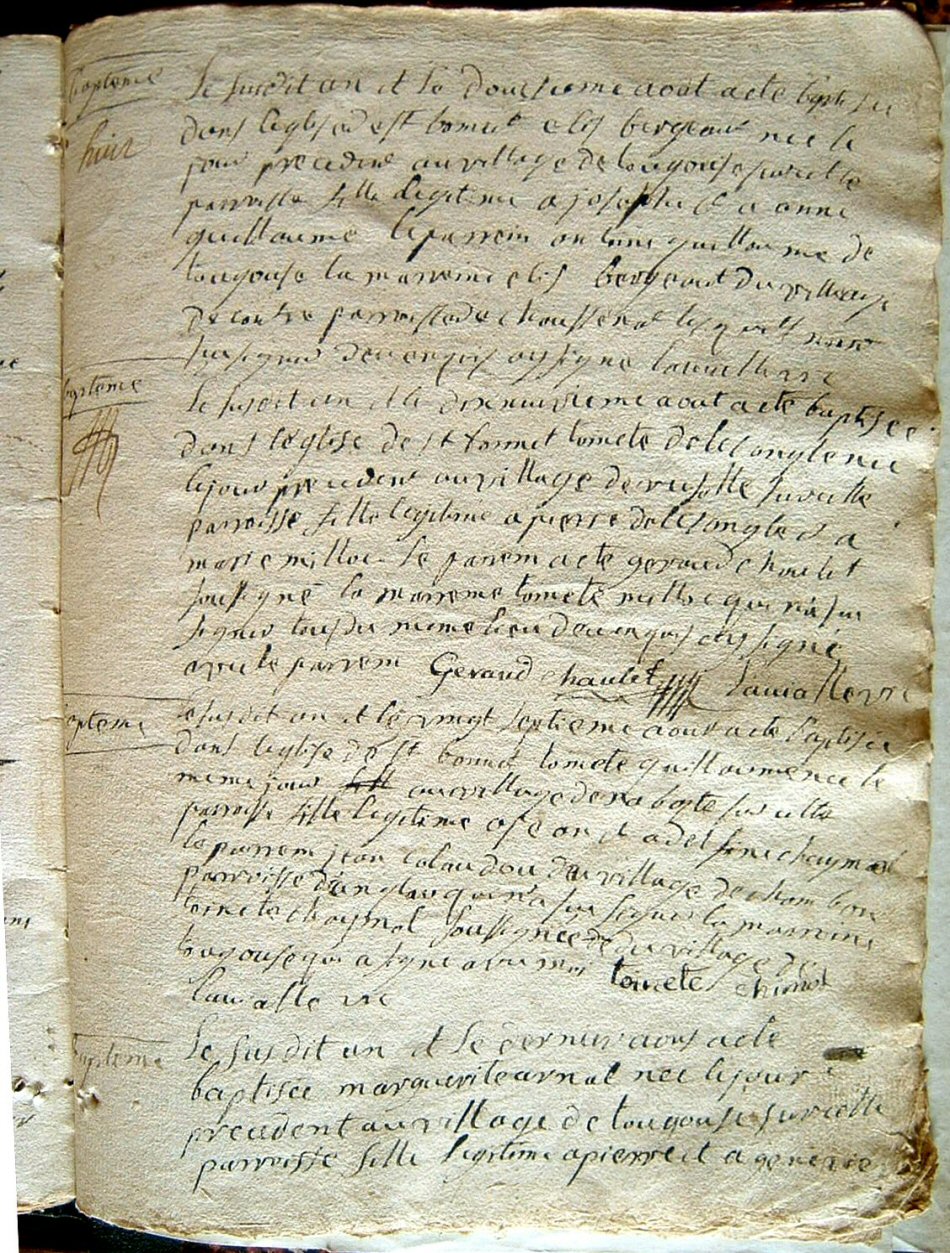 bapteme
huit
Le susdit an et le dousieme aout a eté baptisée
dans leglise de st bonnet elis bergeaut née le
jour precedent au village de tougouse sur cette
parroisse fille legitime a joseph et a anne
guillaume le parrein antoine guillaume de
tougouse la marreine elis bergeaut du village
de contre parroisse de chaussenat lesquels nont
su signer de ce enquis ay signé Lavialle vre
baptême
Le susdit an et le dixneuvieme aout a eté baptisée
dans léglise de st bonnet tomete delesongle née
le jour precedent au village de sur cette
parroisse fille legitime a pierre delesongle et a
marie millac le parrein a eté geraud chaulet
soussigné la marreine tomete millac qui n'a su
signer tous du meme lieu de ce enquis ay signé
avec le parrein Geraud chaulet Lavialle vre
baptème
Le susdit an et le vingt septieme aout a eté baptisée
dans leglise de st bonnet tomete guillaume née le
meme jour au village de sur cette
parroisse fille legitime a jean et a delfine chaymal
le parrein jean du village de chambon
parroisse qui n'a su signer la marreine
tomete chaymal soussignée du village de
tougouse qui a signé avec moi tomete chimol
Lavialle vre
baptême
Le susdit an et le dernier aout a eté
baptisée marguerite arnal née le jour
precedent au village de tougouse sur cette
parroisse fille legitime a pierre et a